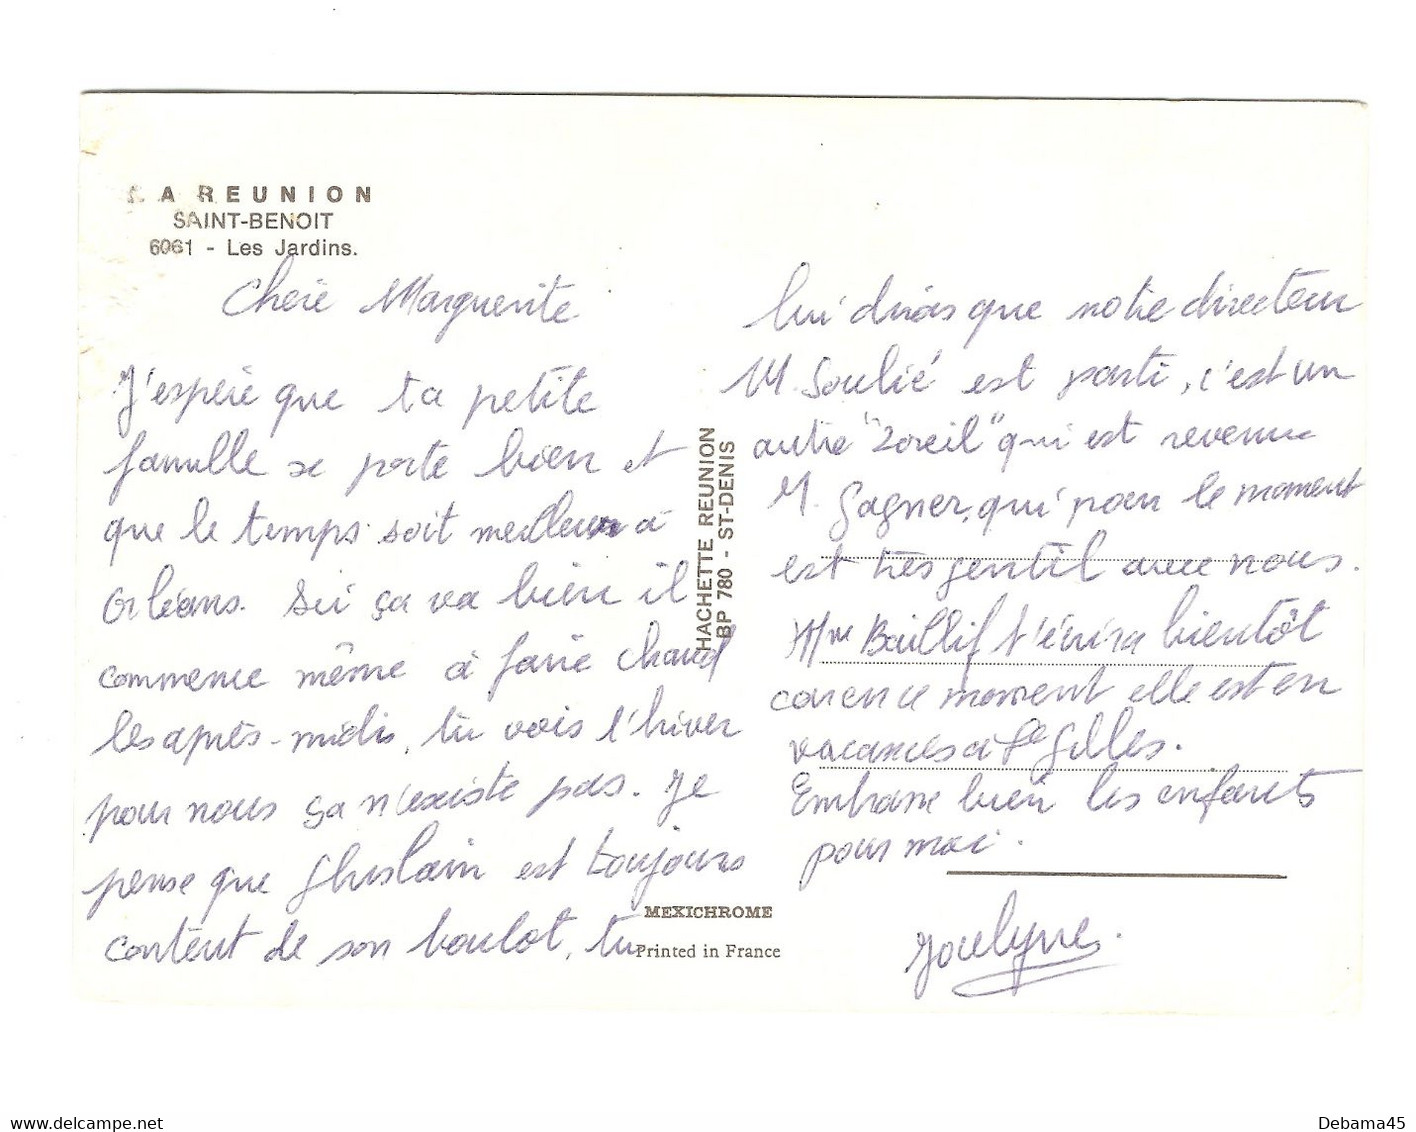 LA REUNION
SAINT-BENOIT
6061 - Les Jardins.
Chère Marguerite
J'espère que ta petite
famille se porte bien et
que le temps soit meilleur à
Orléans. Ici ça va bien il
commence même à faire chaud
les après-midis, tu vois l'hiver
pour nous ça n'existe pas. Je
pense que Ghislain est toujours
content de son boulot, tu
HACHETTE REUNION
BP 780 - ST-DENIS
MEXICHROME
Printed in France
lui diras que notre directeur
M. Soulié est parti, c'est un
autre "zoreil" qui est revenu
M. Gagner, qui pour le moment
est très gentil avec nous.
Mme Baillif t'écrira bientôt
car en ce moment elle est en
vacances à St Gilles.
Embrasse bien les enfants
pour moi.
Jocelyne.
www.delcampe.net
Debama45